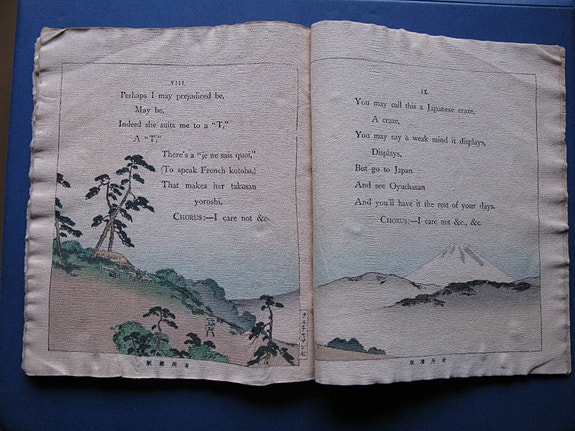 VIII.
Perhaps I may prejudiced be,
May be,
Indeed she suits me to a "T,"
A "T."
There's a "je ne sais quoi,"
(To speak French kotoba,)
That makes her takusan
yoroshi.
CHORUS:—I care not &c.
IX.
You may call this a Japanese craze,
A craze,
You may say a weak mind it displays,
Displays,
But go to Japan
And see Oyuchasan
And you'll have it the rest of your days.
CHORUS:—I care not &c., &c.